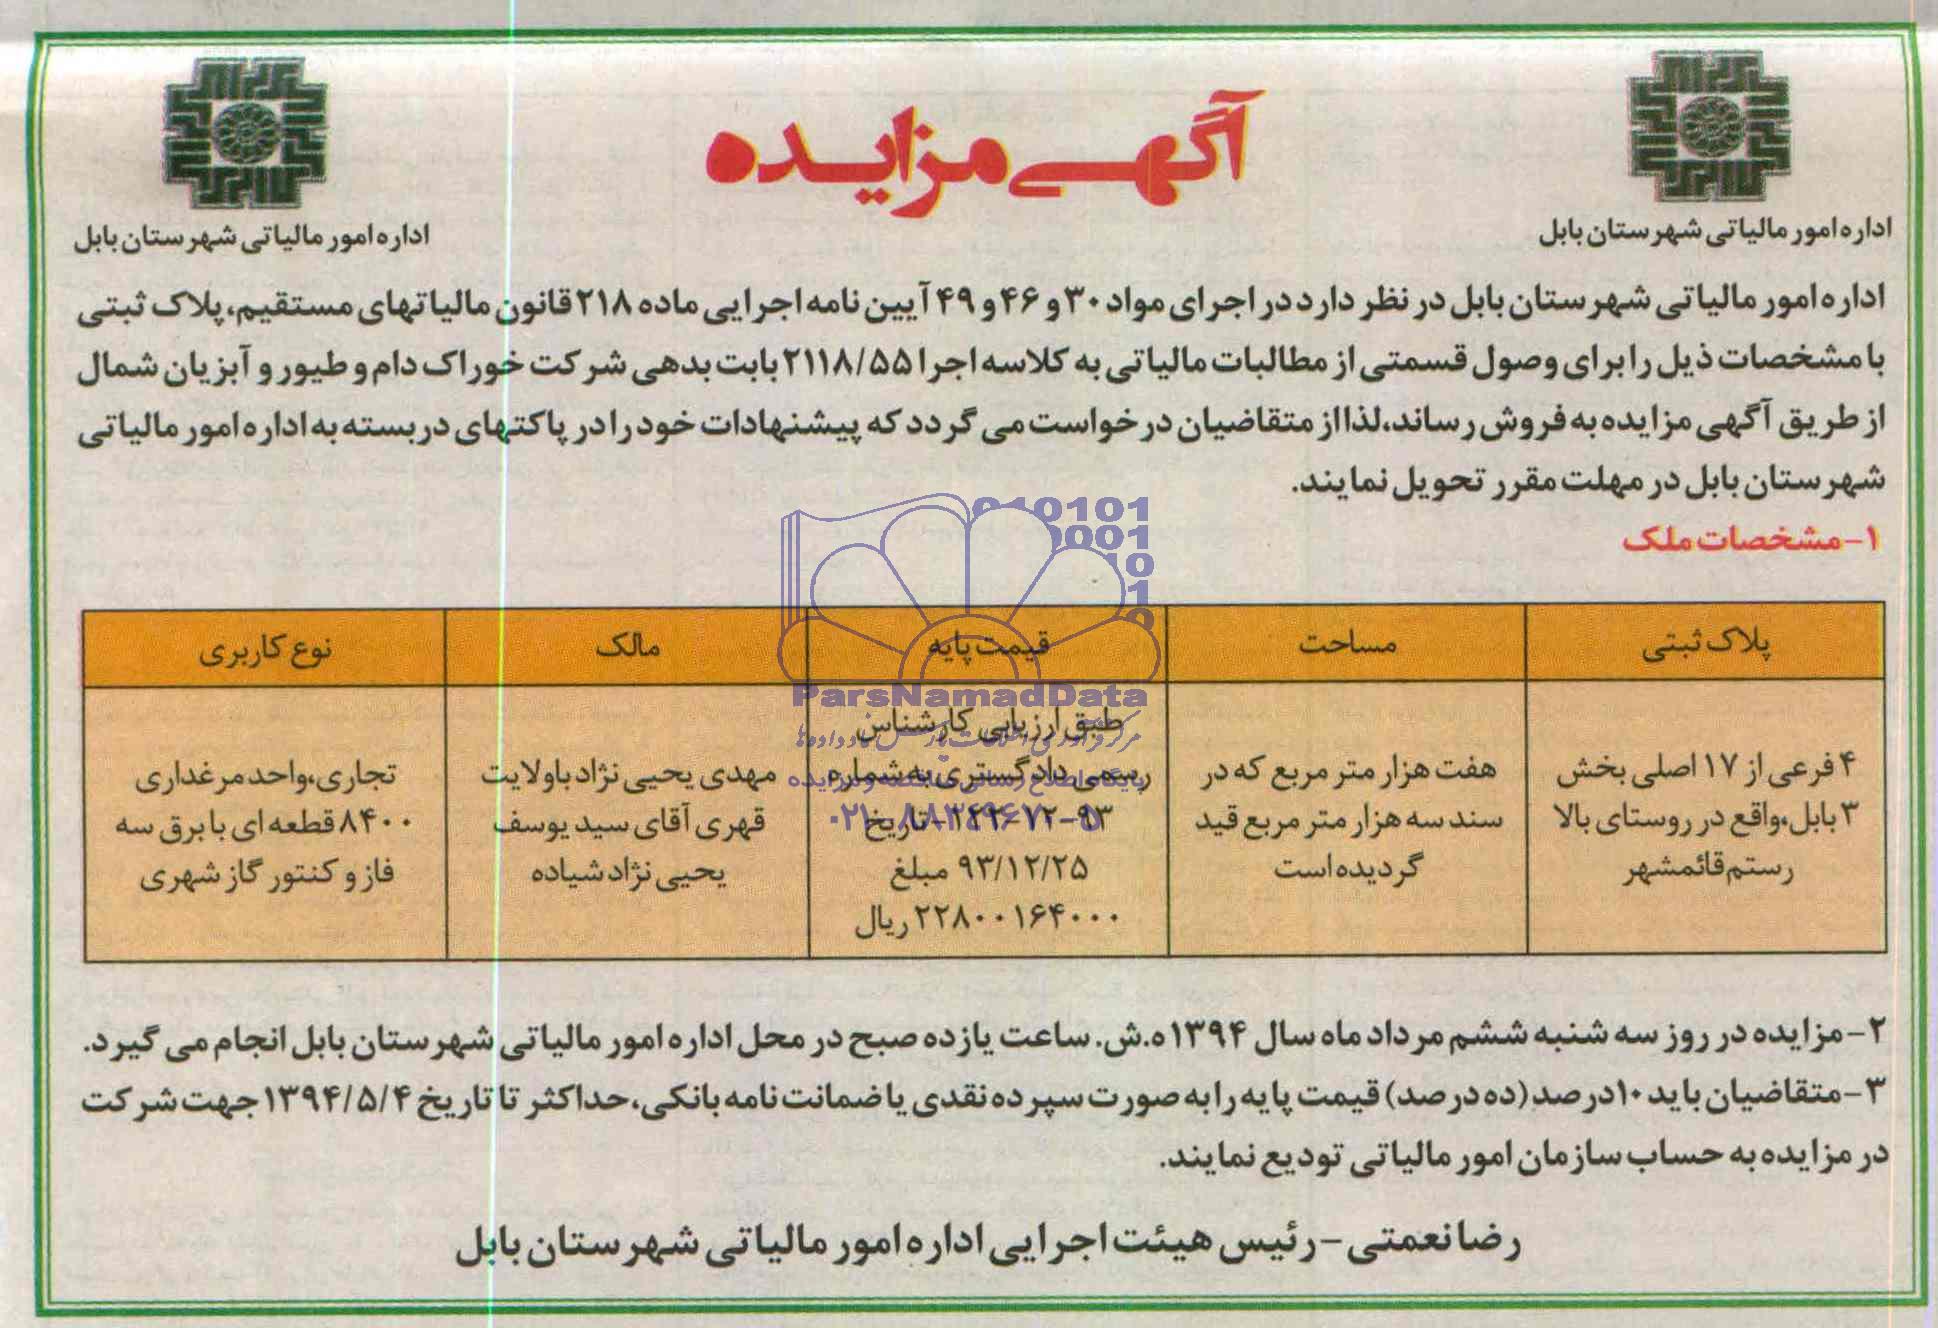 آگهی مزایده
اداره امور مالیاتی شهرستان بابل
اداره امور مالیاتی شهرستان بابل
اداره امور مالیاتی شهرستان بابل در نظر دارد در اجرای مواد ۳۰ و ۴۶ و ۴۹ آیین نامه اجرایی ماده ۲۱۸ قانون مالیاتهای مستقیم، پلاک ثبتی
با مشخصات ذیل را برای وصول قسمتی از مطالبات مالیاتی به کلاسه اجرا ۲۱۱۸/۵۵ بابت بدهی شرکت خوراک دام و طیور و آبزیان شمال
از طریق آگهی مزایده به فروش رساند، لذا از متقاضیان درخواست می گردد که پیشنهادات خود را در پاکتهای دربسته به اداره امور مالیاتی
شهرستان بابل در مهلت مقرر تحویل نمایند.
۱- مشخصات ملک
پلاک ثبتی
مساحت
قیمت پایه
مالک
نوع کاربری
۴ فرعی از ۱۷ اصلی بخش
۳ بابل، واقع در روستای بالا
رستم قائمشهر
هفت هزار متر مربع که در
سند سه هزار متر مربع قید
گردیده است
طبق ارزیابی کارشناس
رسمی دادگستری به شماره
تاریخ
۹۳/۱۲/۲۵ مبلغ
۲۲۸۰۰۱۶۴۰۰۰ ریال
مهدی یحیی نژاد با ولایت
قهری آقای سید یوسف
یحیی نژاد شیاده
تجاری، واحد مرغداری
۸۴۰۰ قطعه ای با برق سه
فاز و کنتور گاز شهری
۲- مزایده در روز سه شنبه ششم مرداد ماه سال ۱۳۹۴ ه.ش. ساعت یازده صبح در محل اداره امور مالیاتی شهرستان بابل انجام می گیرد.
۳- متقاضیان باید ۱۰ درصد (ده درصد) قیمت پایه را به صورت سپرده نقدی یا ضمانت نامه بانکی، حداکثر تا تاریخ ۱۳۹۴/۵/۴ جهت شرکت
در مزایده به حساب سازمان امور مالیاتی تودیع نمایند.
رضا نعمتی - رئیس هیئت اجرایی اداره امور مالیاتی شهرستان بابل
ParsNamadData